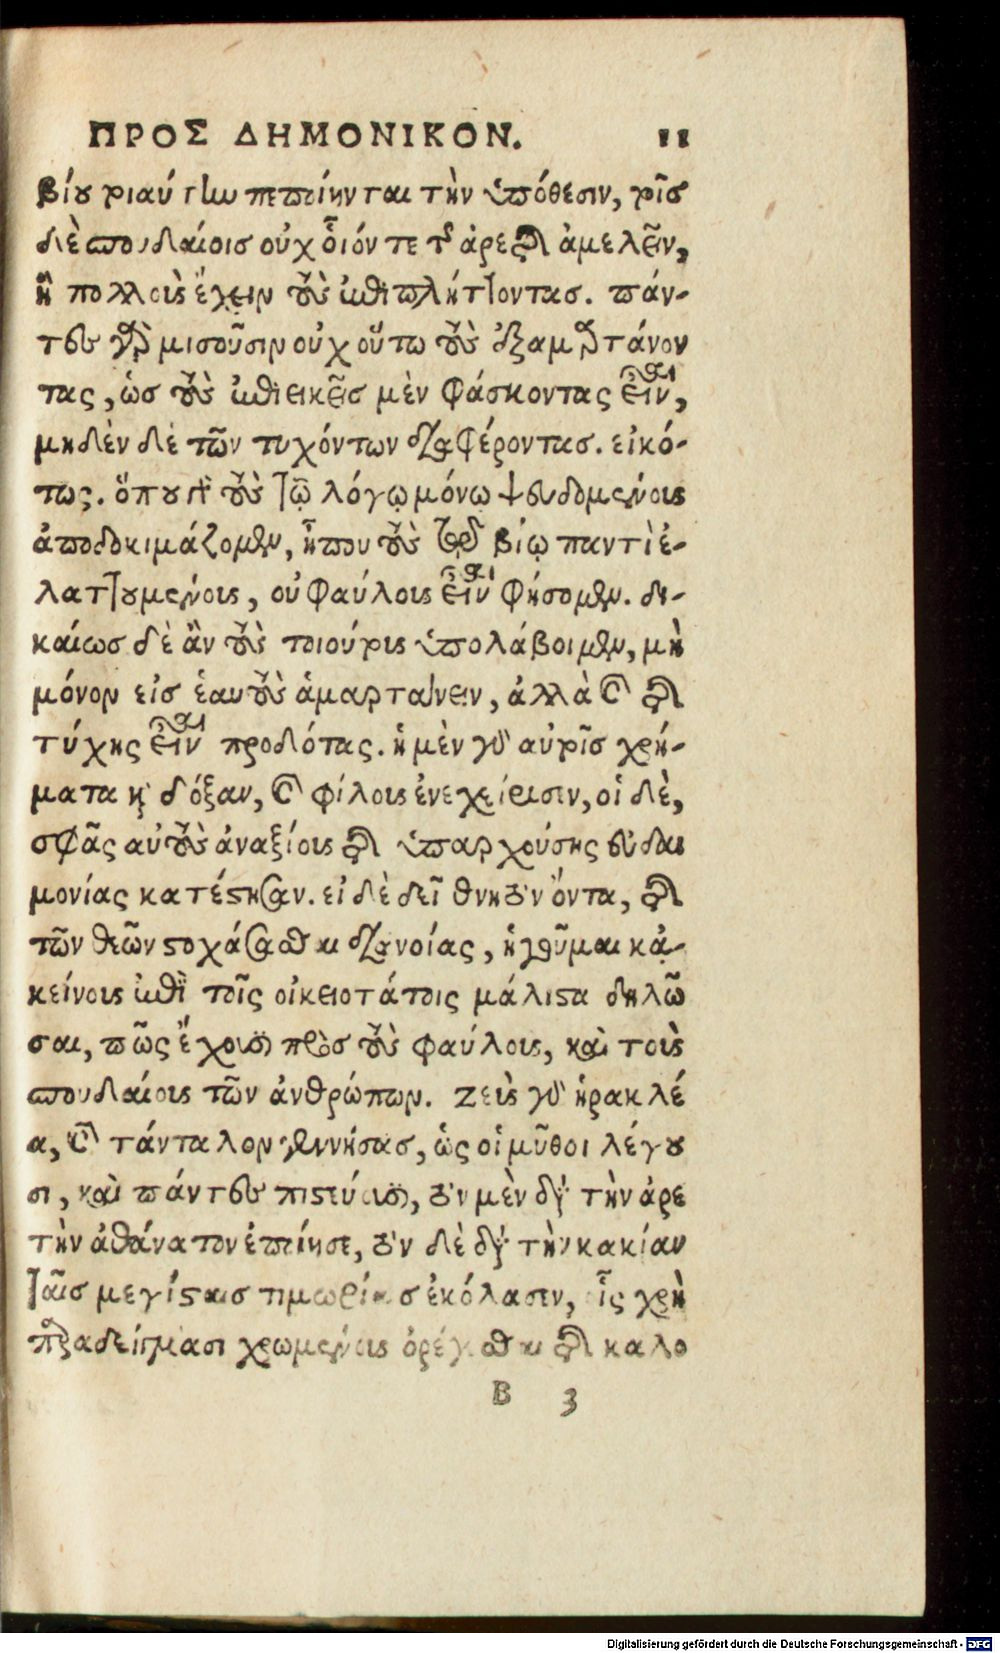 ΠΡΟΣ ΔΗΜΟΝΙΚΟΝ. 11
βίου τοιαύτην πεποίηνται τὴν ὑπόθεσιν, τοῖς
δὲ σπουδαίοις οὐχ οἷόν τε τῆς ἀρετῆς ἀμελεῖν,
ἢ πολλοὺς ἔχειν τοὺς ἐπιπλήττοντας. πάν-
τες γὰρ μισοῦσιν οὐχ οὕτω τοὺς ἐξαμαρτάνον
τας, ὡς τοὺς ἐπιεικεῖς μὲν φάσκοντας εἶναι,
μηδὲν δὲ τῶν τυχόντων διαφέροντας. εἰκό-
τως. ὅπου γὰρ τοὺς τῷ λόγῳ μόνῳ ψευδομένους
ἀποδοκιμάζομεν, ἦπου τοὺς τῷ βίῳ παντὶ ἐ-
λαττουμένους, οὐ φαύλους εἶναι φήσομεν. δι-
καίως δὲ ἂν τοὺς τοιούτους ὑπολάβοιμεν, μὴ
μόνον εἰς ἑαυτοὺς ἁμαρτάνειν, ἀλλὰ καὶ τῆς
τύχης εἶναι προδότας. ἡ μὲν γὰρ αὐτοῖς χρή-
ματα καὶ δόξαν, καὶ φίλους ἐνεχείρισιν, οἱ δὲ,
σφᾶς αὐτοὺς ἀναξίους τῆς ὑπαρχούσης εὐδαι
μονίας κατέστησαν. εἰ δὲ δεῖ θνητὸν ὄντα, τῆς
τῶν θεῶν στοχάσασθαι διανοίας, ἡγοῦμαι κἀ-
κείνους ἐπὶ τοῖς οἰκειοτάτοις μάλιστα δηλῶ
σαι, πῶς ἔχουσι πρὸς τοὺς φαύλους, καὶ τοὺς
σπουδαίους τῶν ἀνθρώπων. Ζεὺς γὰρ ἡρακλέ
α, καὶ τάνταλον γεννήσας, ὡς οἱ μῦθοι λέγου
σι, καὶ πάντες πιστεύουσι, τὸν μὲν διὰ τὴν ἀρε
τὴν ἀθάνατον ἐποίησε, τὸν δὲ διὰ τὴν κακίαν
ταῖς μεγίσταις τιμωρίαις ἐκόλασεν, οἷς χρὴ
παραδείγμασι χρωμένους ὀρέγεσθαι τῆς καλο
B 3
Digitalisierung gefördert durch die Deutsche Forschungsgemeinschaft - DFG